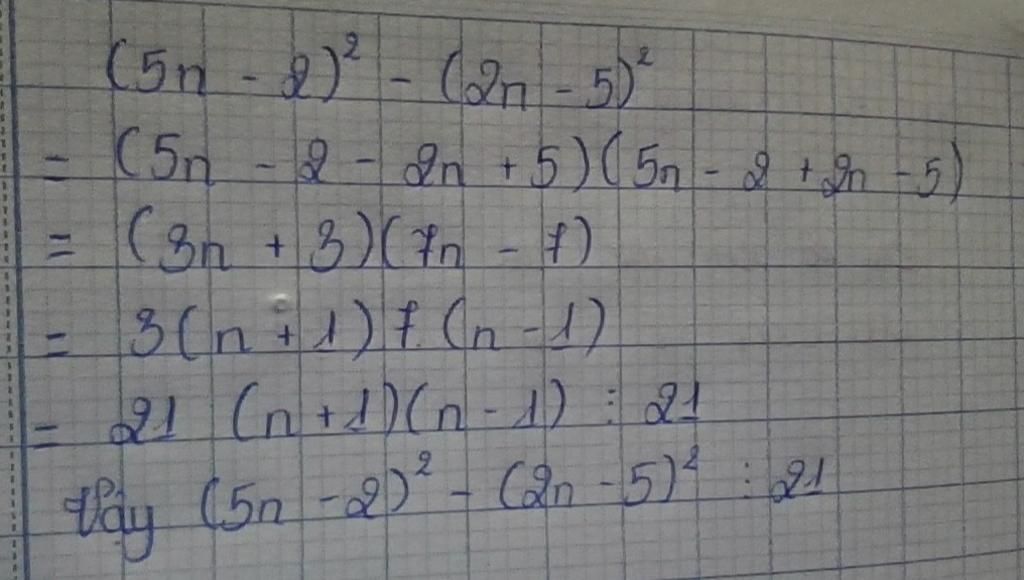 (5n - 2)² - (2n - 5)²
= (5n - 2 - 2n + 5)(5n - 2 + 2n - 5)
= (3n + 3)(7n - 7)
= 3(n + 1) 7. (n - 1)
= 21 (n + 1)(n - 1) ⋮ 21
Vậy (5n - 2)² - (2n - 5)² ⋮ 21